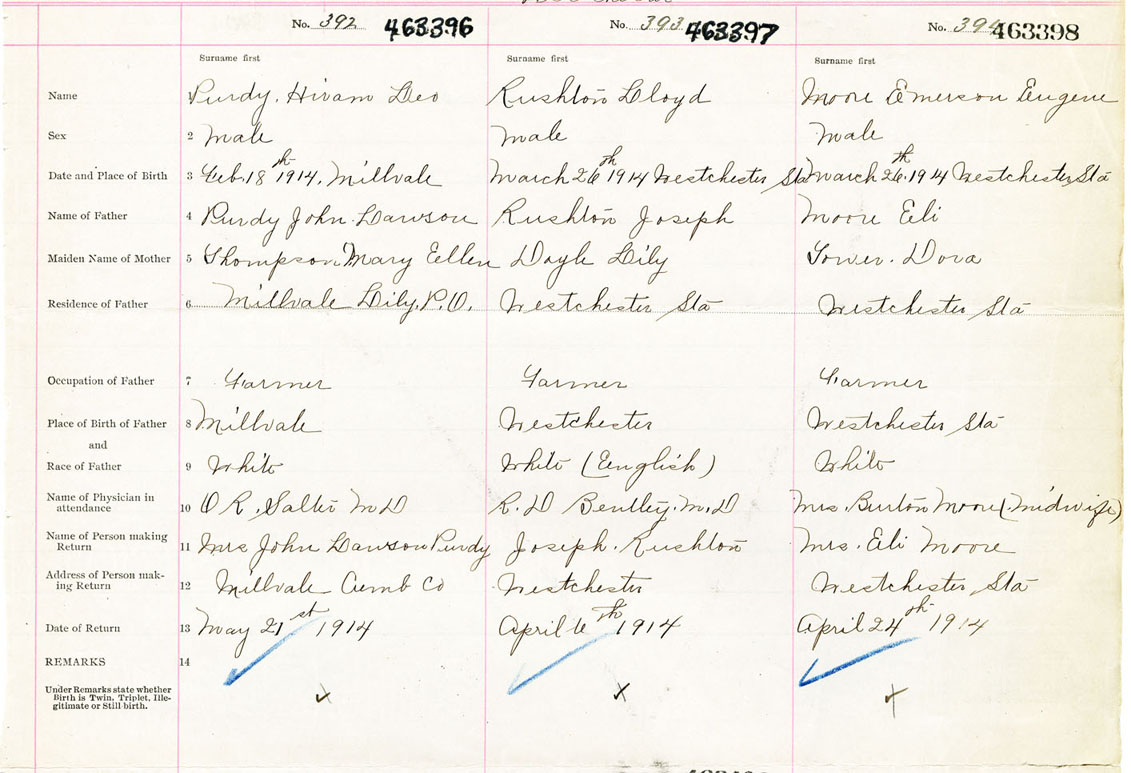 No. 392 463396 No. 393 463397 No. 394 463398
Surname first Surname first Surname first
Name 1 Purdy, Hiram Leo Rushton Lloyd Moore Emerson Eugene
Sex 2 Male Male Male
Date and Place of Birth 3 Feb. 18th 1914, Millvale March 26th 1914 Westchester Sta March 26th 1914 Westchester Sta
Name of Father 4 Purdy John Dawson Rushton Joseph Moore Eli
Maiden Name of Mother 5 Thompson Mary Ellen Doyle Lily Tower. Dora
Residence of Father 6 Millvale Lily, P.O. Westchester Sta Westchester Sta
Occupation of Father 7 Farmer Farmer Farmer
Place of Birth of Father 8 Millvale Westchester Westchester Sta
and
Race of Father 9 White White (English) White
Name of Physician in
attendance 10 O R. Salter M D R. D Bentley. M. D Mrs. Burton Moore (Midwife)
Name of Person making
Return 11 Mrs John Dawson Purdy Joseph. Rushton Mrs. Eli Moore
Address of Person mak-
ing Return 12 Millvale Cumb Co Westchester Westchester Sta
Date of Return 13 May 21st 1914 April 6th 1914 April 24th 1914
REMARKS 14
Under Remarks state whether
Birth is Twin, Triplet, Ille-
gitimate or Still-birth.